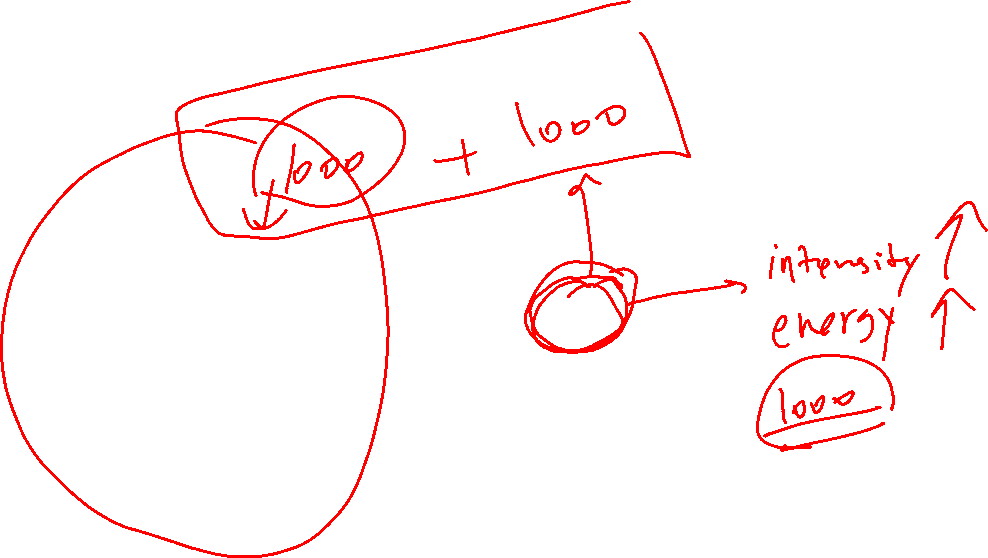 1000 + 1000
intensity ↑
energy ↑
1000